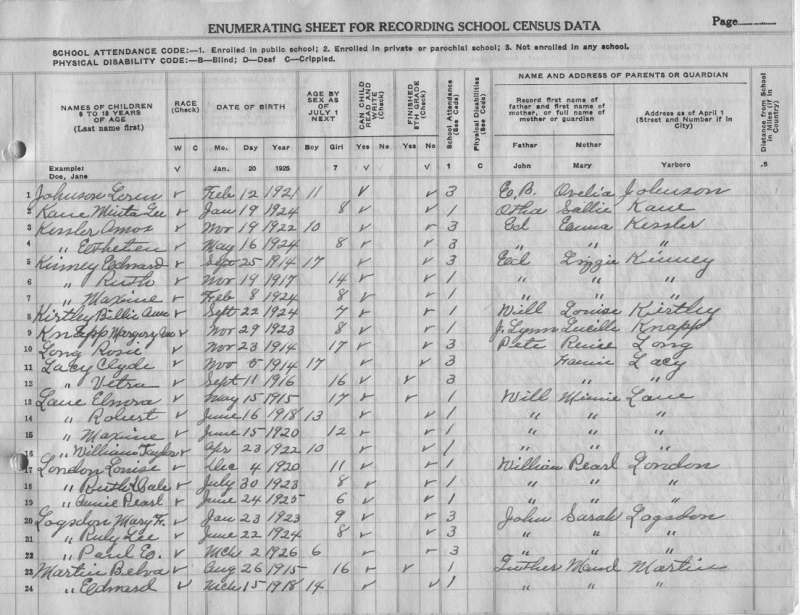 ENUMERATING SHEET FOR RECORDING SCHOOL CENSUS DATA Page
SCHOOL ATTENDANCE CODE:—1. Enrolled in public school; 2. Enrolled in private or parochial school; 3. Not enrolled in any school.
PHYSICAL DISABILITY CODE:—B—Blind; D—Deaf C—Crippled.
NAMES OF CHILDREN 6 TO 18 YEARS OF AGE (Last name first) RACE (Check) DATE OF BIRTH AGE BY SEX AS OF JULY 1 NEXT CAN CHILD READ AND WRITE (Check) FINISHED 8TH GRADE (Check) School Attendance (See Code) Physical Disabilities (See Code) NAME AND ADDRESS OF PARENTS OR GUARDIAN Distance from School in Miles (if in Country)
Record first name of father and first name of mother, or full name of mother or guardian Address as of April 1 (Street and Number if in City)
W C Mo. Day Year Boy Girl Yes No Yes No Father Mother
Example: Doe, Jane V Jan. 20 1925 7 V V 1 C John Mary Yarboro .5
1 Johnson Loren v Feb 12 1921 11 v v 3 E.B. Ovelia Johnson
2 Kane Minta Lee v Jan 19 1924 8 v v 1 Otha Sallie Kane
3 Kessler Amos v Nov 19 1922 10 v v 3 Ed Emma Kessler
4 " v May 16 1924 8 v v 3 " " "
5 Kinney Edward v Sept 25 1914 17 v v 3 Ed Lizzie Kinney
6 " Ruth v Nov 19 1917 14 v v 1 " " "
7 " Maxine v Feb 8 1924 8 v v 1 " " "
8 Kirtley Billie Ann v Sept 22 1924 7 v v 1 Will Louise Kirtley
9 Knapp Margery v Nov 29 1923 8 v v 1 J. Lynn Lucille Knapp
10 Long Rosie v Nov 23 1914 17 v v 3 Pete Long
11 Lacy Clyde v Nov 5 1914 17 v v 3 Fannie Lacy
12 " Vetra v Sept 11 1916 16 v v 3 " "
13 Lane Elmora v May 15 1915 17 v v 1 Will Minnie Lane
14 " Robert v June 16 1918 13 v v 1 " " "
15 " Maxine v June 15 1920 12 v v 1 " " "
16 " William Taylor v Apr 23 1922 10 v v 1 " " "
17 London Louise v Dec 4 1920 11 v v 1 William Pearl London
18 " Ruth v July 30 1923 8 v v 1 " " "
19 " Annie Pearl v June 24 1925 6 v v 1 " " "
20 Logsdon Mary F. v Jan 23 1923 9 v v 3 John Sarah Logsdon
21 " Ruby Lee v June 22 1924 8 v v 3 " " "
22 " Paul E. v Mch 2 1926 6 v v 3 " " "
23 Martin Belva v Aug 26 1915 16 v v 1 Luther Maud Martin
24 " Edward v Mch 15 1918 14 v v 1 " " "